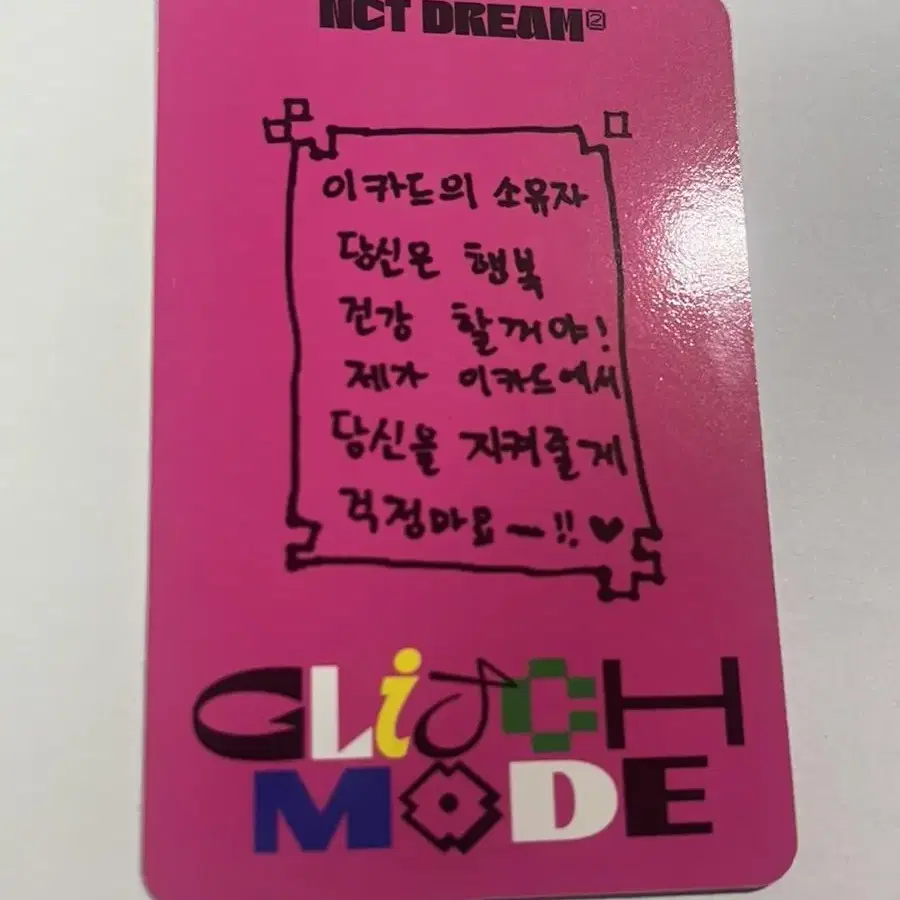 NCT DREAM②
이 카드의 소유자
당신은 행복
건강 할꺼야!
제가 이카드에서
당신을 지켜줄게
걱정마요~!! ♥
GLiTCH
MODE